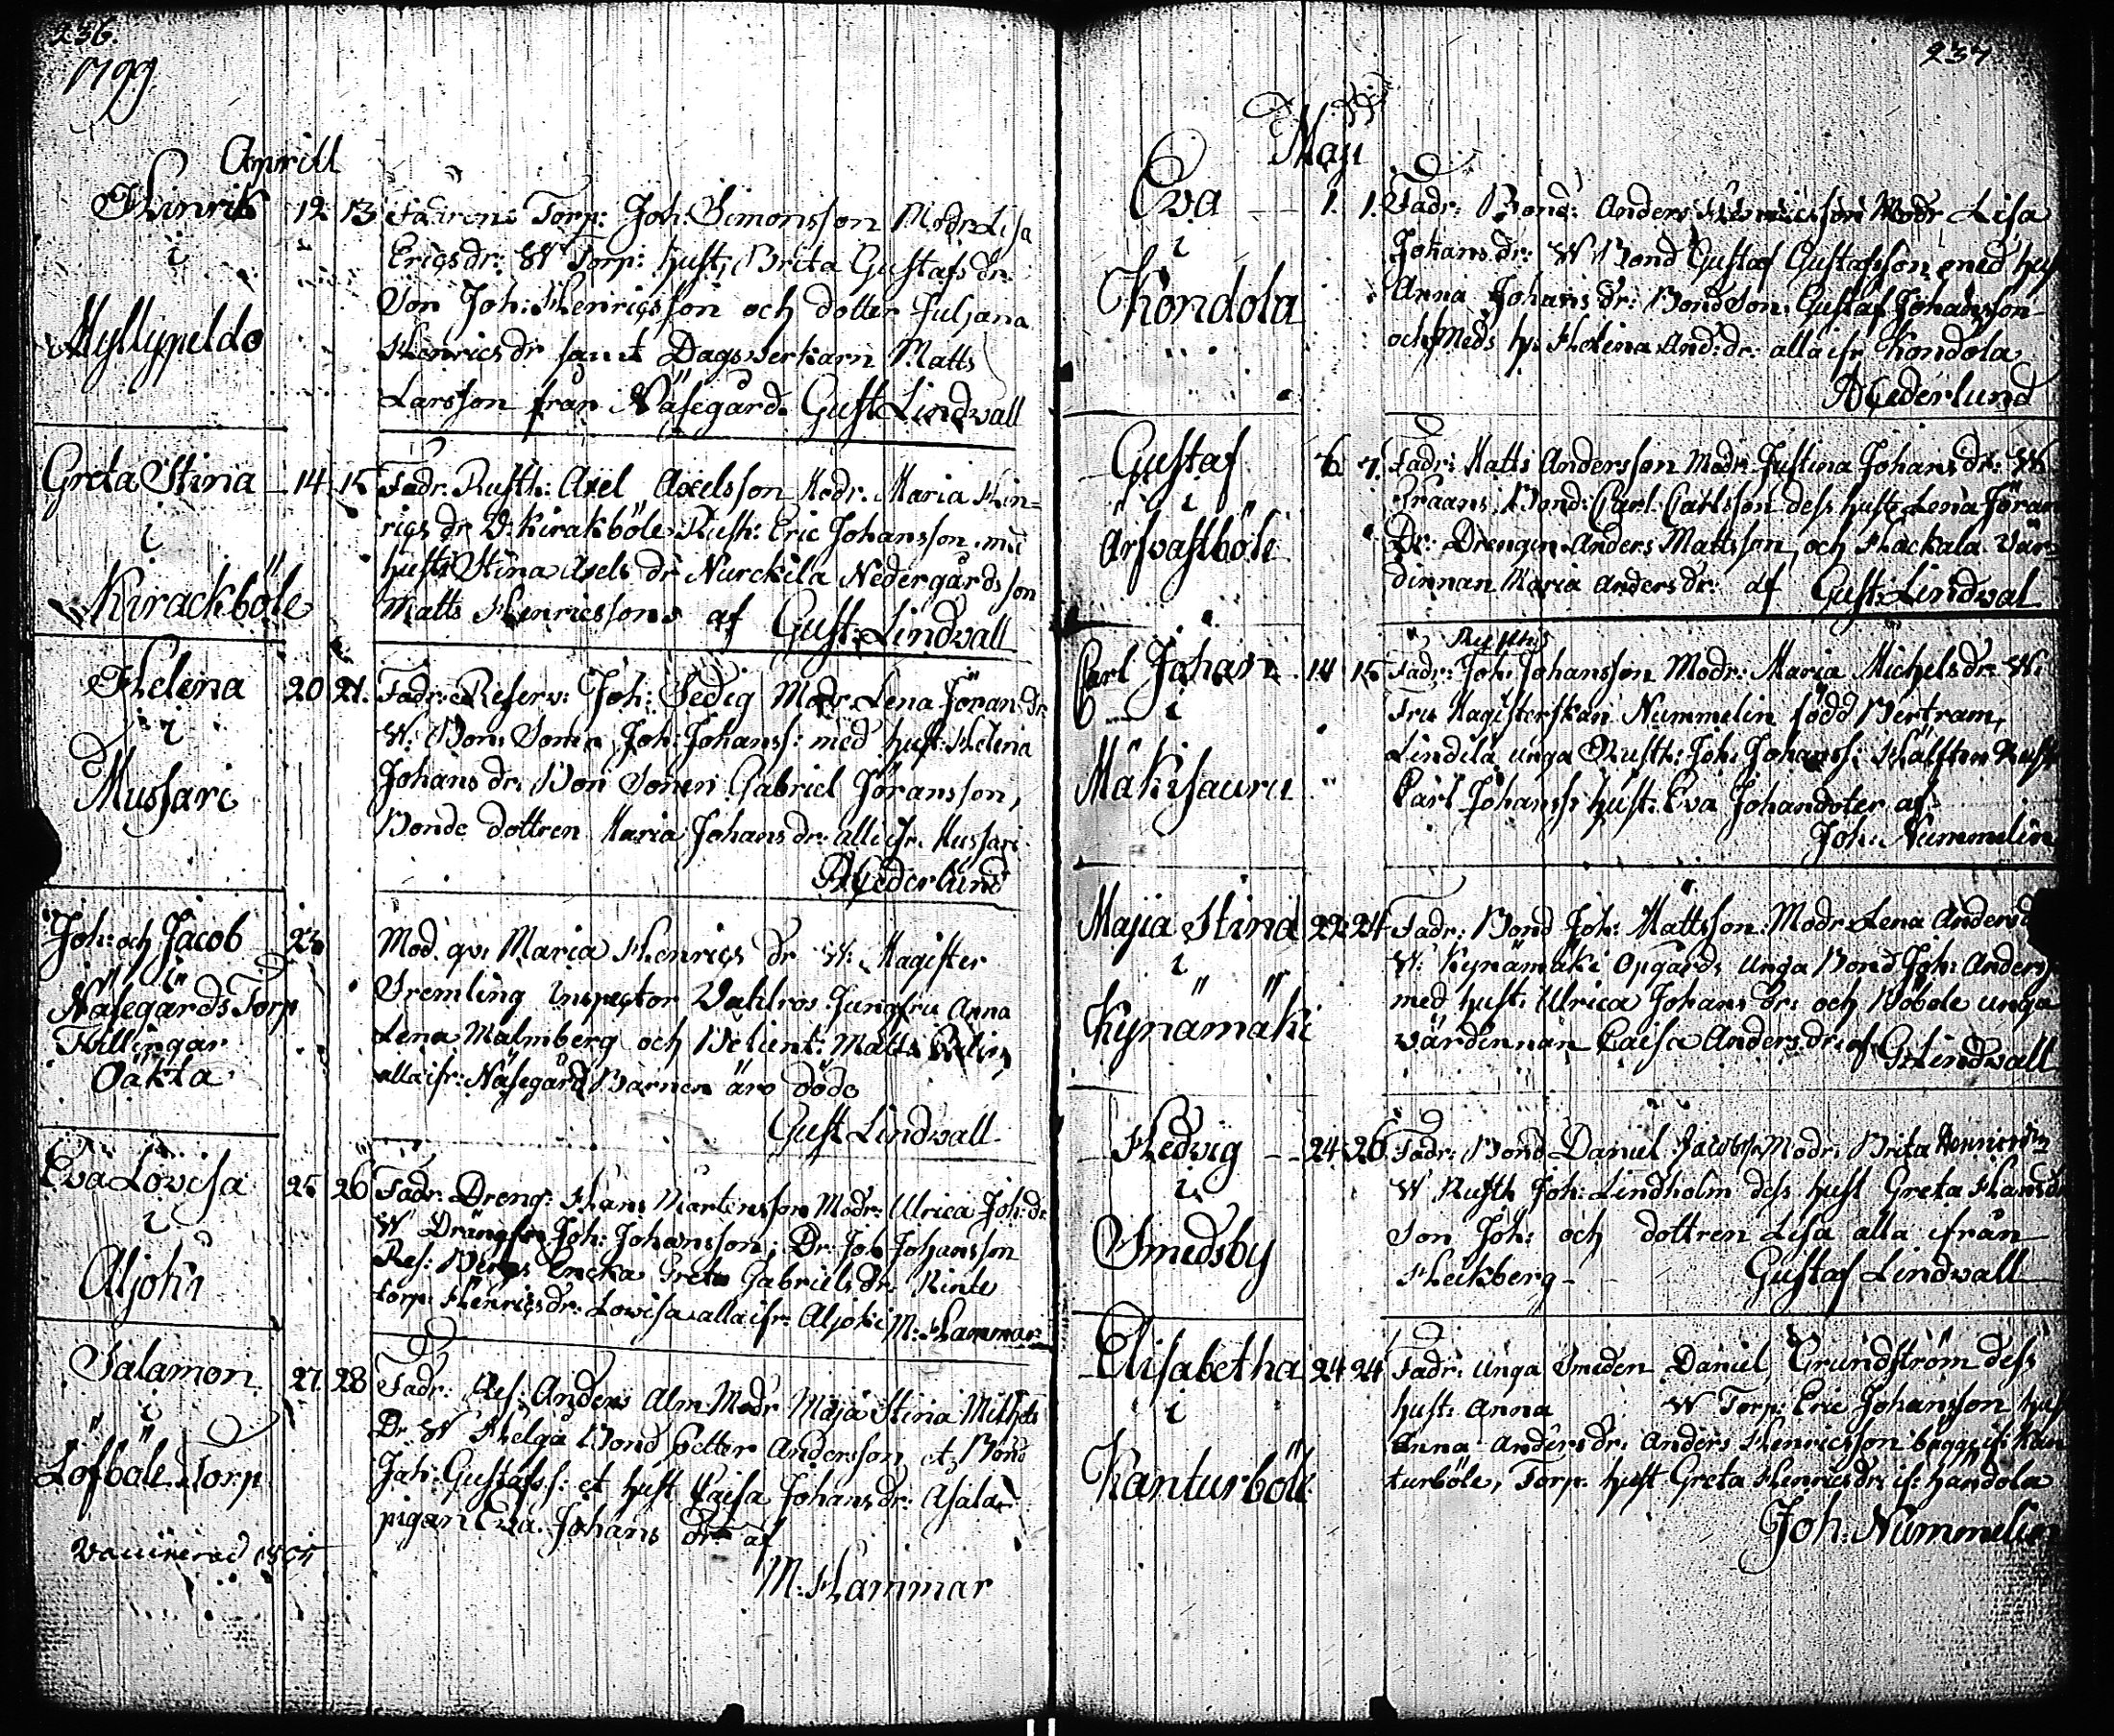 236.
1799
Aprill
Hinrik 12 13 Fadrens Torp: Joh: Simonsson Modr: Lisa
i Ericsdr: W Torp: hust, Brita Gustafsdr.
Son Joh: Henricsson och dotter Juljana
Myllypeldo Henricsdr samt Dagsverkarn Matts
Larsson från Näsegård. Gust Lindvall
Greta Stina 14 15 Fadr. Rusth: Axel Axelsson Modr. Maria Hin-
i rigs dr V: Kirakböle Rusth: Eric Johansson. md
hust: Stina Axels dr Nurckila Nedergårdsson
Kirackböle Matts Henricssons af Gust: Lindvall
Helena 20 21. Fadr: Reserv: Joh: Sedig Modr Lena Jöransdr
i W: Bon: Sonen Joh: Johanss: med hust: Helena
Mussari Johans dr: Bon Sonen Gabriel Jöransson,
Bonde dottren Maria Johans dr: alle ifr. Mussari
A Cederlund
Joh: och Jacob 23 Mod. qv: Maria Henrics dr W: Magister
i Fremling Inspector Dahlros Jungfru Anna
Näsegårds Torp Lena Malmberg och Betient: Matts
Tillingar alla ifr: Näsegård Barnen äro döde
Oäkta
Gust Lindvall
Eva Lovisa 25 26 Fadr. Dreng: Hans Mårtensson Modr: Ulrica Joh: dr
i W Joh: Johansson; Dr: Joh Johansson
Aljoki Res: Bergs Encka Greta Gabrielsdr: Rintu
torp: Henricsdr: Lovisa alla ifr: Aljoki M: Hammar
Salamon 27 28 Fadr: Res: Anders Alm Modr Maja Stina Mickels
i Dr W Helgå Bond Petter Andersson et Bond
Löfböle Torp Joh: Gustafss: et hust Caisa Johansdr: Asalar
pigan Eva Johans dr: af
Vaccinerad
M: Hammar
237
Maji
Eva 1. 1. Fadr: Bond: Anders Henricsson Modr Lisa
i Johansdr: W Bond Gustaf Gustafsson med hust
Kondola Anna Johans dr: Bond Son: Gustaf Johansson
och Meds h: Helena And: dr: alla ifr Kondola
A Cederlund
Gustaf 6 7. Fadr: Matts Andersson Modr: Justina Johansdr: W
i Bond: Carl Carlsson dess hust Lena Jöran
Arfvastböle Dr: Drengen Anders Mattsson, och Hackala Vär-
dinnan Maria Anders dr: af Gust: Lindval
Rusth:
Carl Johan 14 15 Fadr: Joh: Johansson Modr: Maria Michelsdr: W:
i Fru Magisterskan Nummelin född Bertram,
Mäkisauru Lindilä unga Rusth: Joh: Johanss: Hälften Rusth
Carl Johanss: hust: Eva Johandoter af
Joh: Nummelin
Majia Stina 22 24 Fadr: Bond Joh: Mattsson Modr Lena Anders
i W: Kynämäki Opgårds Unga Bond Joh: Anderss
Kynämäki med hust: Ulrica Johans dr: och Böböle unga
Värdinnan Caisa Anders dr: af G: Lindvall
Hedvig 24 26 Fadr: Bond Daniel Jacobss: Modr: Brita Henricsdr
i W Rusth Joh: Lindholm dess hust Greta Hansdr
Smedsby Son Joh: och dottren Lisa alla ifrån
Heikberg Gustaf Lindvall
Elisabetha 24 24 Fadr: Unga Smeden Daniel Grundström dess
i hust: Anna W Torp: Eric Johansson hust
Kanturböle Anna Anders dr: Anders Henricsson bägge if: Kan
turböle, Torp. hust Greta Henricsdr: if: Handola
Joh: Nummelin